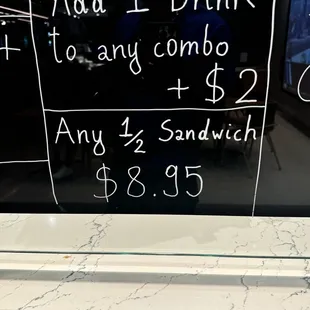 Add 1 Drink
to any combo
+ $2
Any 1/2 Sandwich
$8.95